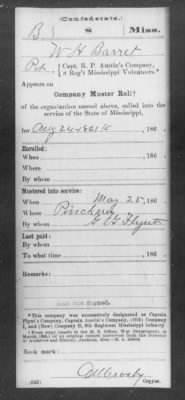 (Confederate.)
B 8 Miss.
W H Barret
Pvt , Capt. R. P. Austin's Company,
8 Reg't Mississippi Volunteers.*
Appears on
Company Muster Roll†
of the organization named above, called into the
service of the State of Mississippi,
for Aug 24 1861 to , 186 .
Enrolled:
When , 186 .
Where
By whom
Mustered into service:
When May 25, 186
Where
By whom
Last paid:
By whom
To what time , 186
Remarks:
Roll Not Signed.
*This company was successively designated as Captain
Flynt's Company, Captain Austin's Company, (1st) Company
I, and (New) Company B, 8th Regiment Mississippi Infantry.
Book mark:
(642) Copyist.